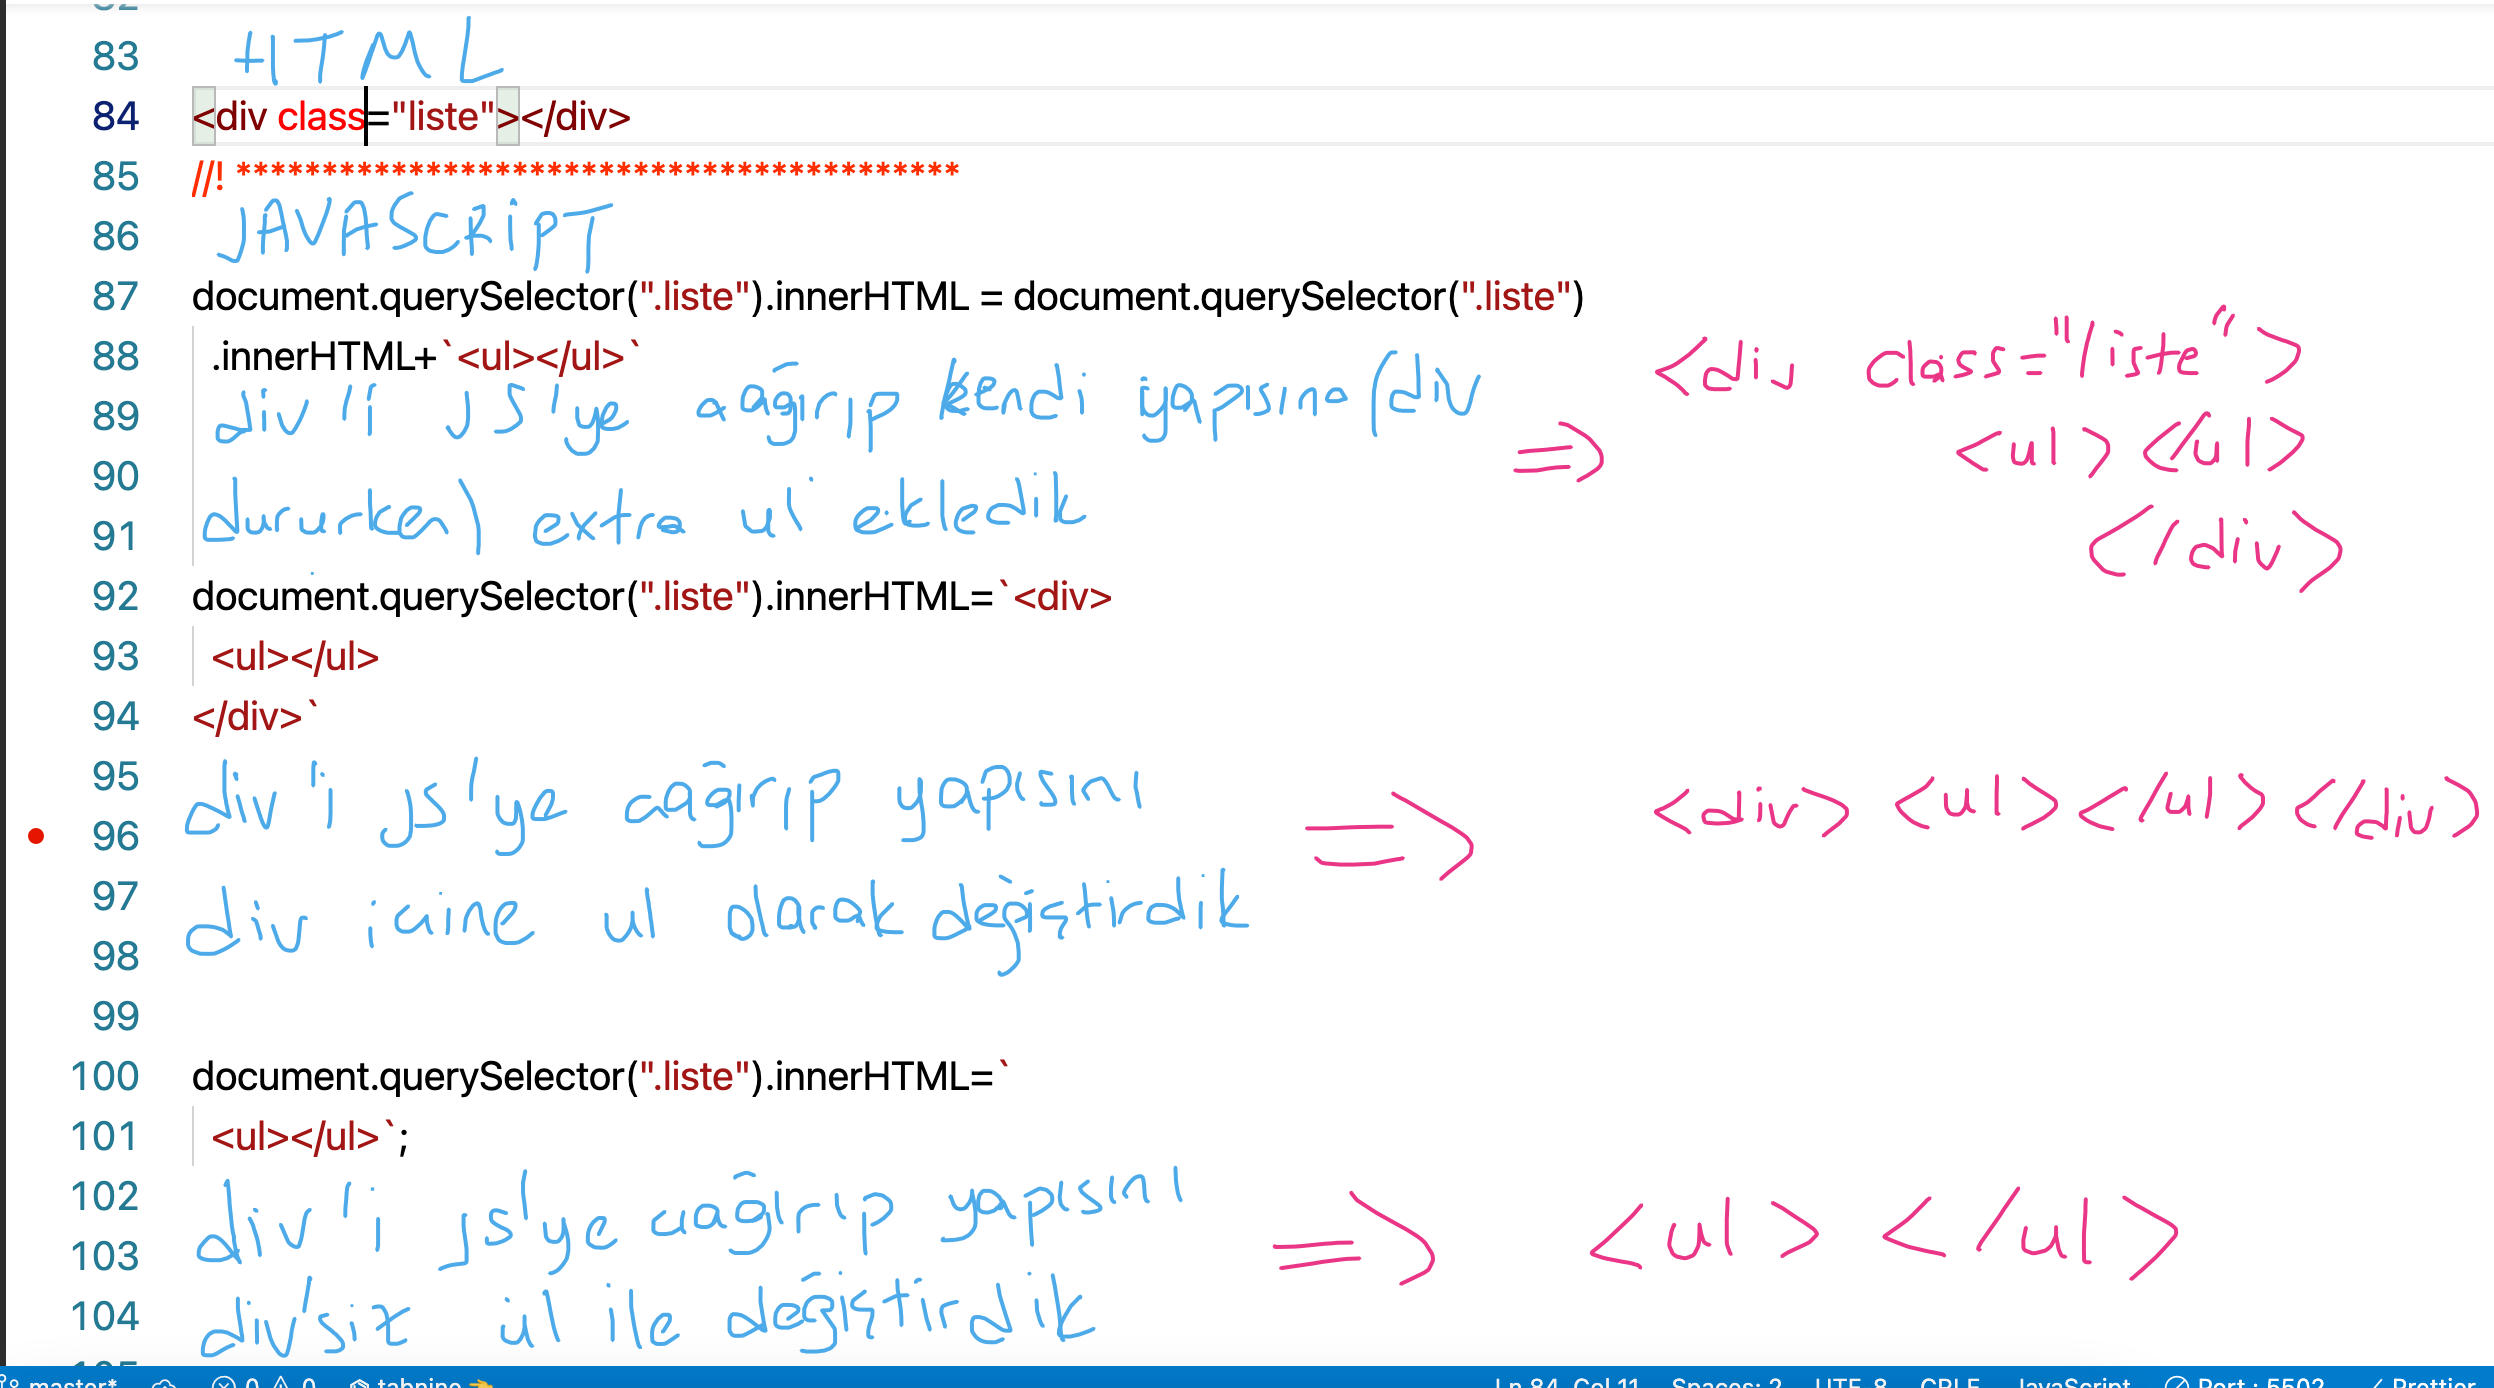 83 HTML
84 <div class="liste"></div>
85 //! ******************************************
86 JAVASCRiPT
87 document.querySelector(".liste").innerHTML = document.querySelector(".liste")
88 .innerHTML+`<ul></ul>`
<div class="liste">
89 div'i JS'ye cağırıp kendi yapısına (div
=> <ul></ul>
90
91 dururken) extra ul ekledik
</div>
92 document.querySelector(".liste").innerHTML=`<div>
93 <ul></ul>
94 </div>`
95 div'i js'ye cağırıp yapısını
96 => <div><ul></ul></div>
97 div icine ul olarak değiştirdik
98
99
100 document.querySelector(".liste").innerHTML=`
101 <ul></ul>`;
102 div'i js'ye cağırıp yapısını
103 => <ul></ul>
104 div'siz ül ile değiştirdik
master* 0 0 tabnine Ln 84, Col 11 Spaces: 2 UTF-8 CRLF JavaScript Port : 5502 Prettier